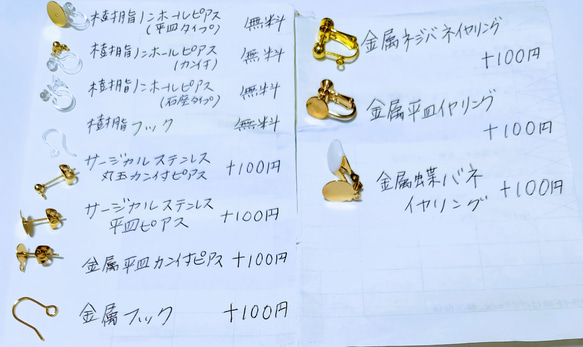 樹脂ノンホールピアス 無料
(平皿タイプ)
樹脂ノンホールピアス 無料
(カン付)
樹脂ノンホールピアス 無料
(石座タイプ)
樹脂フック 無料
サージカルステンレス
丸玉カン付ピアス +100円
サージカルステンレス
平皿ピアス +100円
金属平皿カン付ピアス +100円
金属フック +100円
金属ネジバネイヤリング
+100円
金属平皿イヤリング
+100円
金属蝶バネ
イヤリング +100円